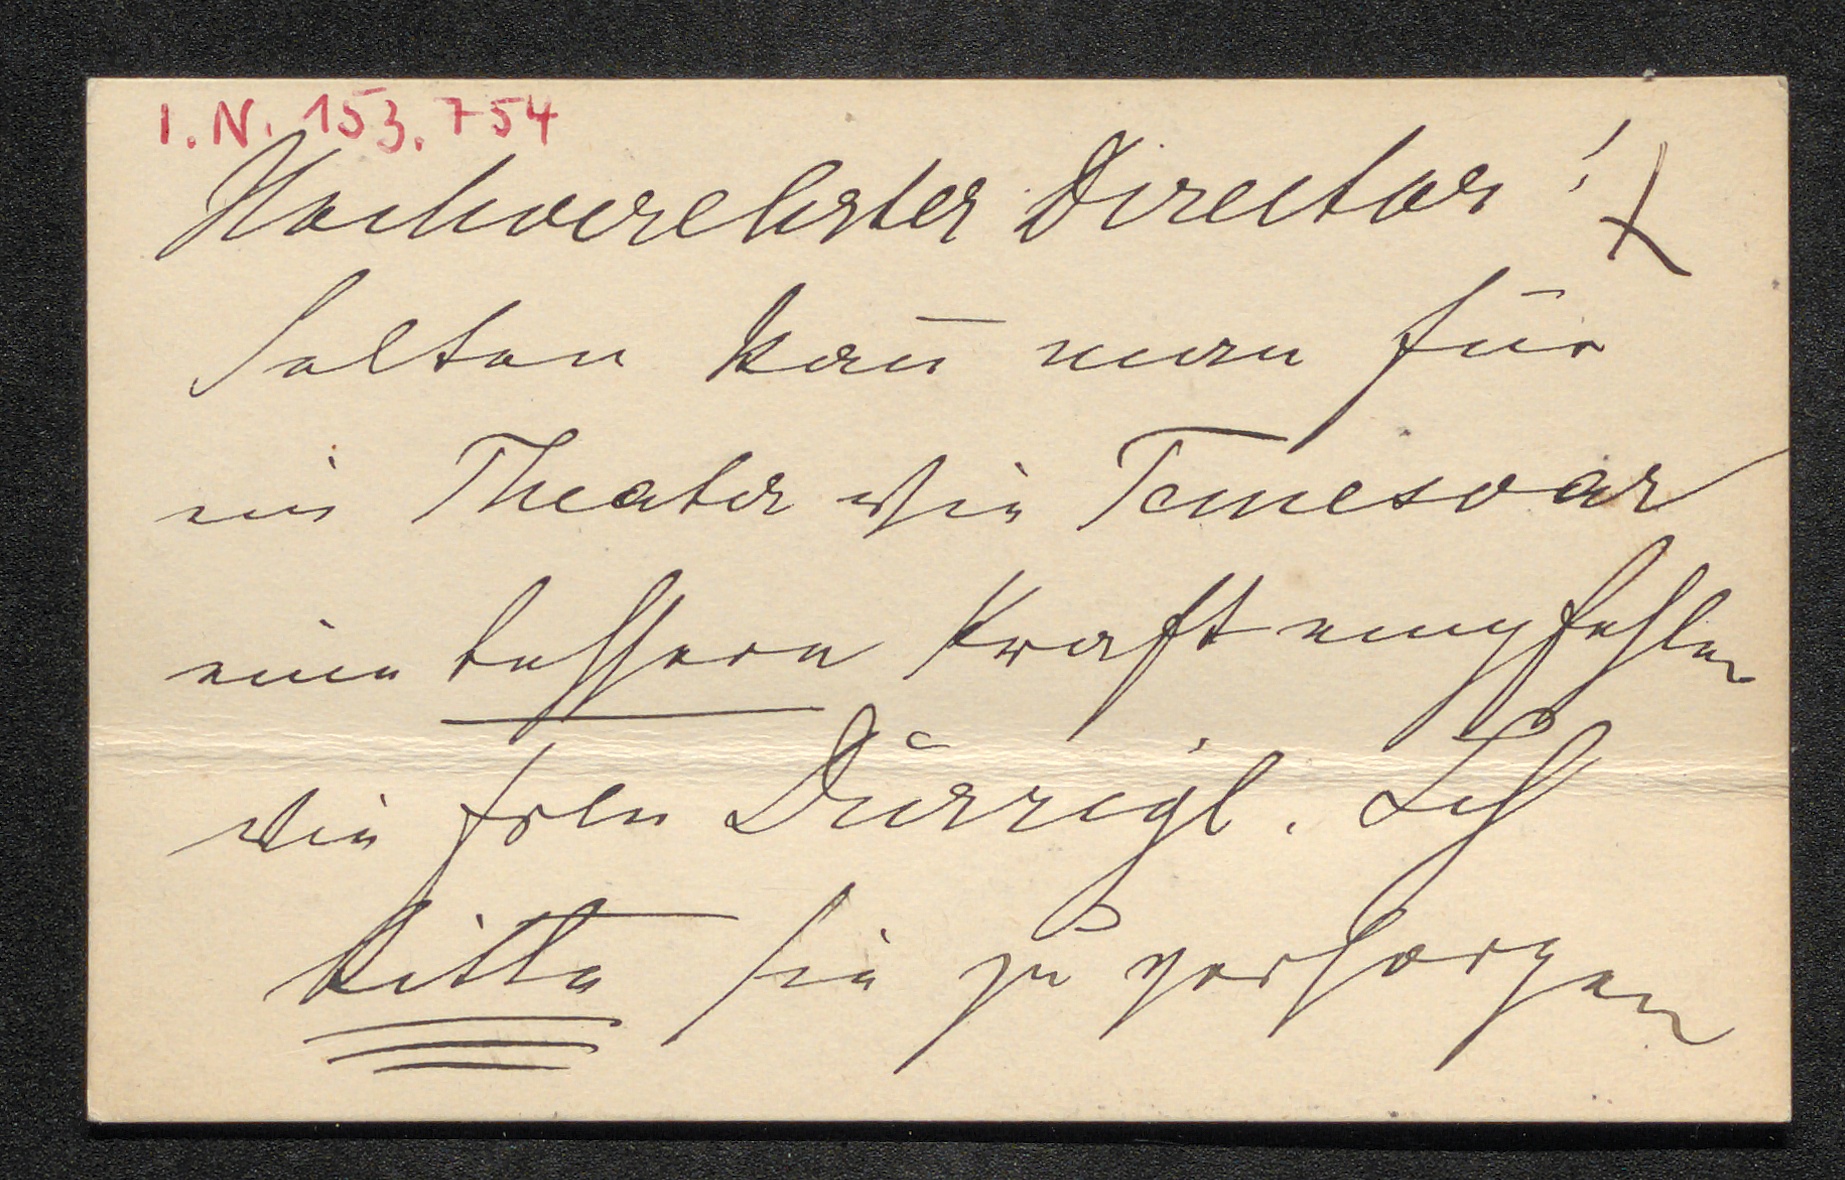 I.N. 153.754
Hochverehrter Director!
Selten kan̄ man für
ein Theater wie Temesvar
eine bessere Kraft empfehlen
wie Frln Dürrigl. Ich
bitte sie zu versorgen